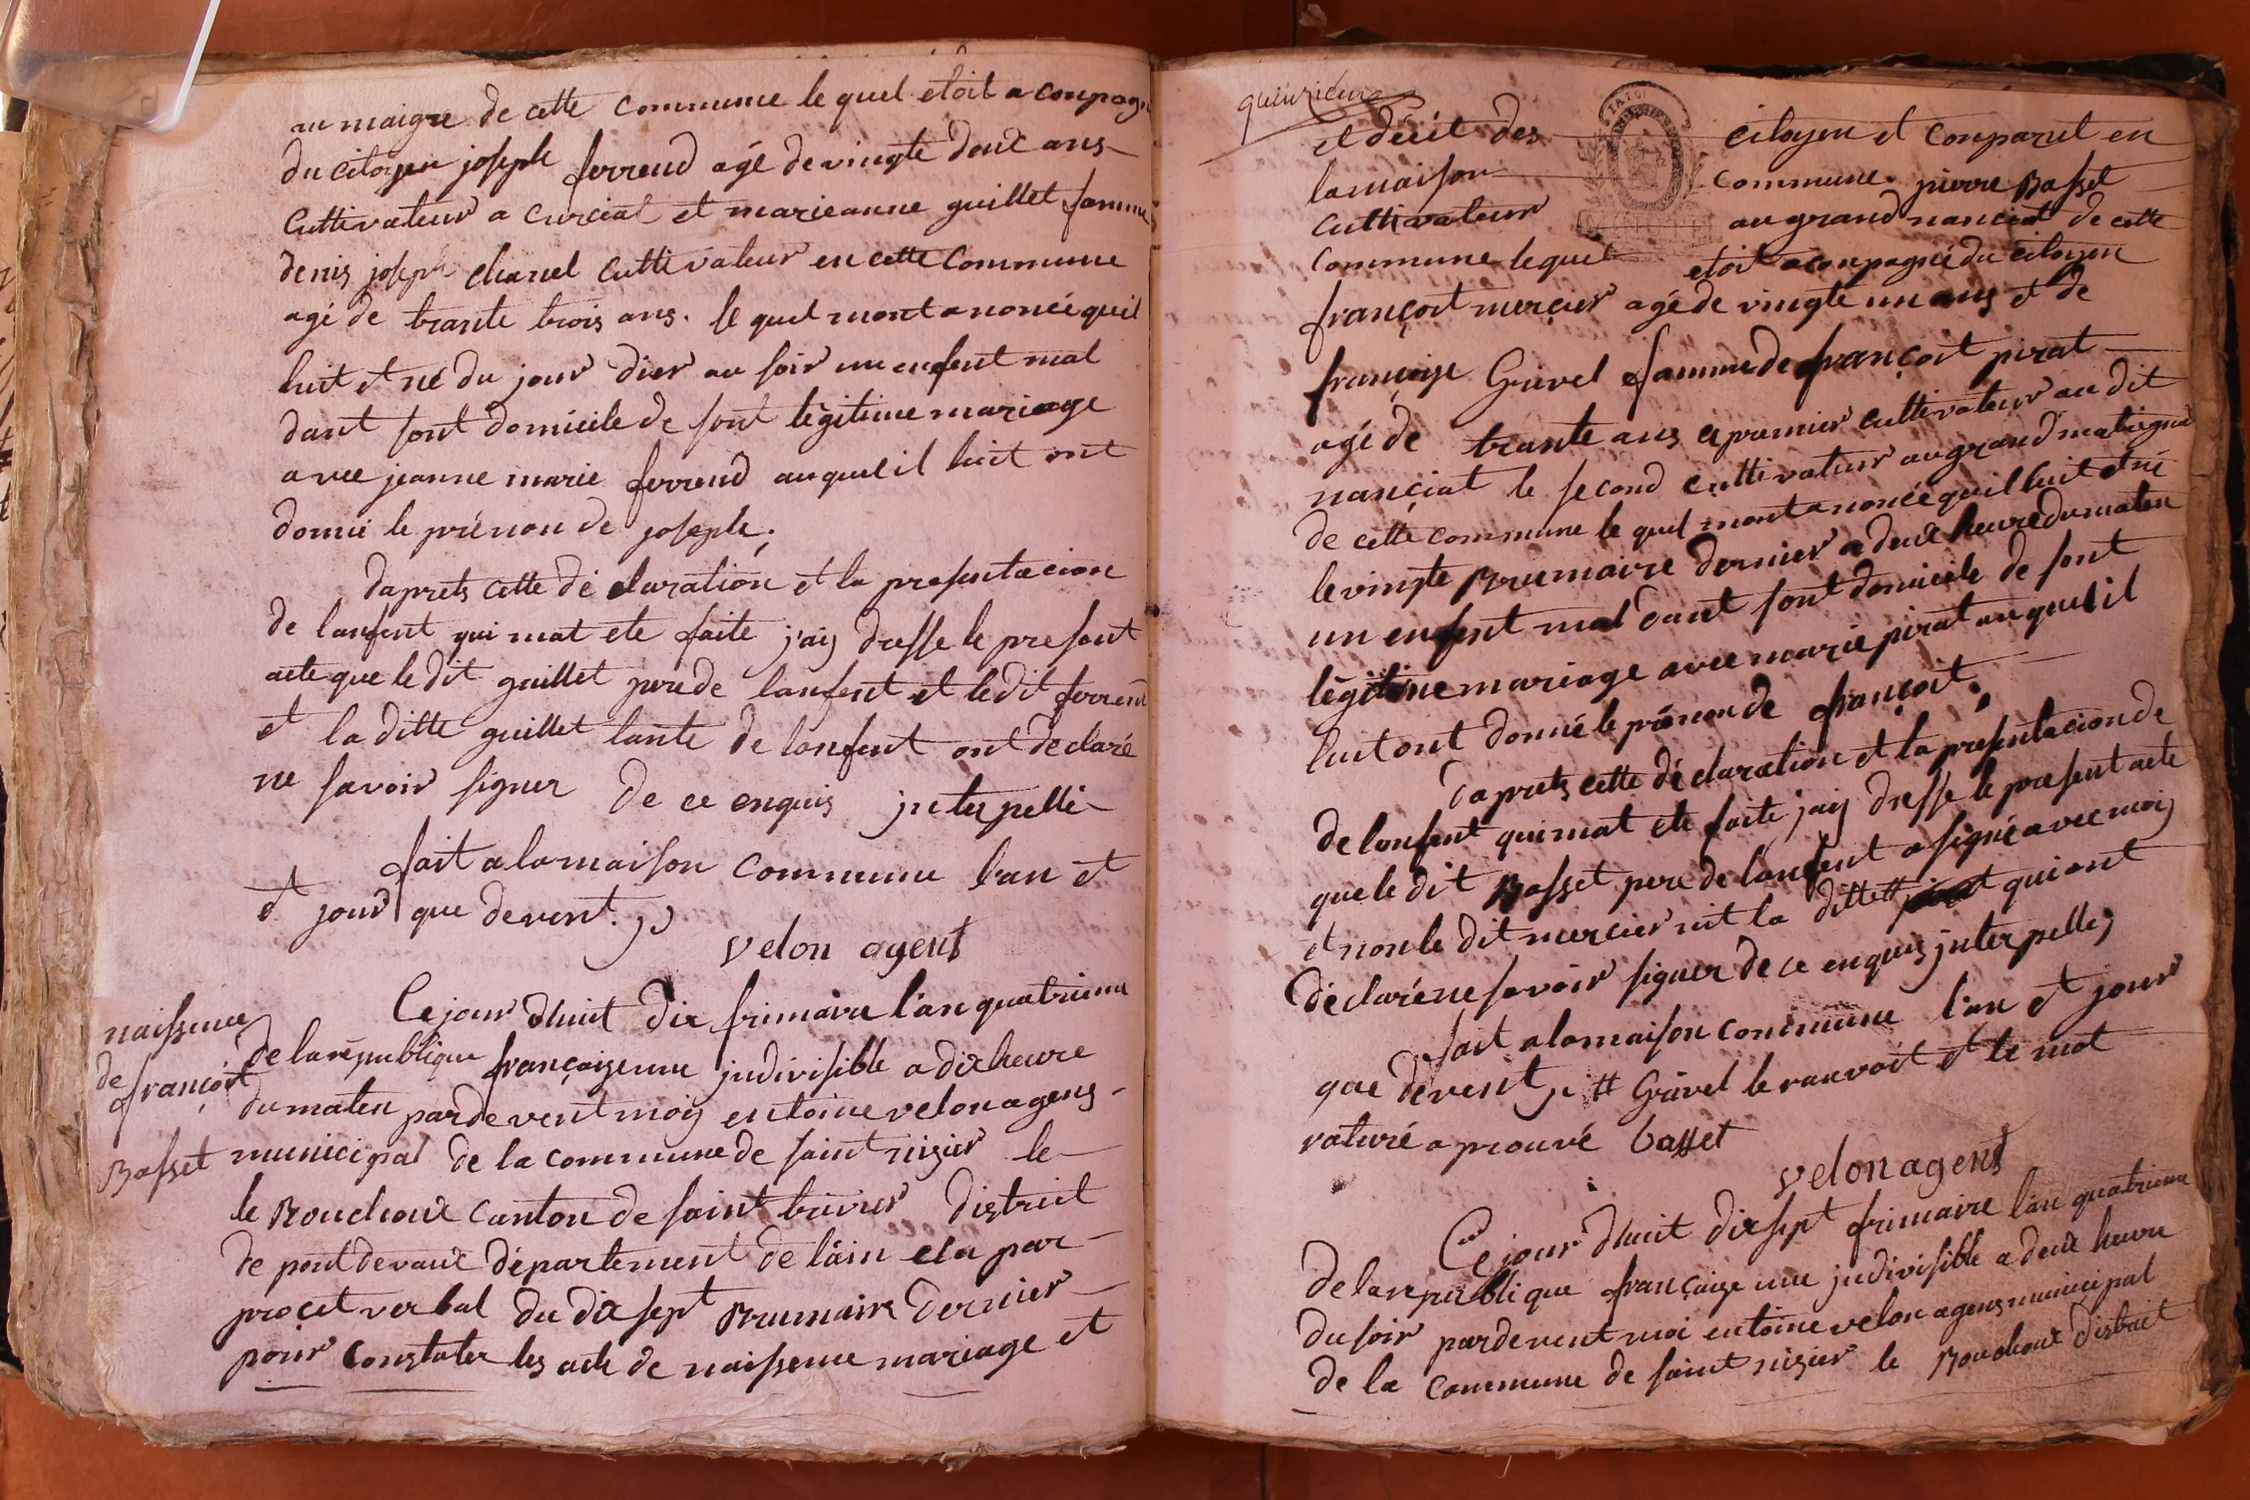 au maigre de cette commune le quel etoit a conpagn
du citoyen joseph ferrend agé de vingte deux ans
Cuttivateur a curciat et marieanne guillet famme
denis joseph chanel cuttivateur en cette commune
agé de trante trois ans. le quel mont anoncé quil
luit et né du jour dier au soir un enfent mal
dant sont domicile de sont légitime mariage
avec jeanne marie ferrend auquel il luit ont
donné le prénon de joseph.
daprets cette dé claration et la presentacion
de lanfent qui mat ete faite j'aij dresse le present
acte que le dit guillet pere de lanfent et ledit ferrend
et la ditte guillet tante de lanfent ont déclaré
ne savoir signer de ce enquis jnterpellé
fait a la maison commune l'an et
et jour que devent.
velon agent
naissence de françoit Basset
Ce jour dhuit dix frimaire l'an quatrieme
de la république françaize une jndivisible a dix heure
du maten pardevent moij entoine velon agens
municipal de la commune de saint nizier le
le Bouchoux canton de saint trivier district
de pont devaux département de l'ain elu par
procet verbal du dix sept Brumaire dernier
pour constater les acte de naissence mariage et
et décit des citoyen et conparut en
la maison commune. pierre Basset
cuttivateur au grand nanciat de cette
commune lequel etoit aconpagné du citoyen
françoit mercier agé de vingte un ans et de
françoize Gravel famme de françoit pirat
agé de trante ans le premier cuttivateur au dit
nanciat le second cuttivateur au grand matignat
de cette commune le quel mont anoncé quil luit et né
le vingte Brumaire dernier a deux heure du maten
un enfent mal dant sont domicile de sont
légitime mariage avec marie pirat auquel il
luit ont donné le prénon de françoit.
daprets cette dé claration et la presentacion de
de lanfent qui mat ete faite j'aij dresse le present acte
que le dit Basset pere de lanfent a signé avec moij
et non le dit mercier nit la ditte # qui ont
déclaré ne savoir signer de ce enquis jnterpellé
fait a la maison commune l'an et jour
que devent # Gravel le ranvoit et le mot
raturé a prouvé basset
velon agent
Ce jour dhuit dix sept frimaire l'an quatrieme
de la republique françaize une jndivisible a deux heure
du soir pardevent moi entoine velon agens municipal
de la commune de saint nizier le Bouchoux district